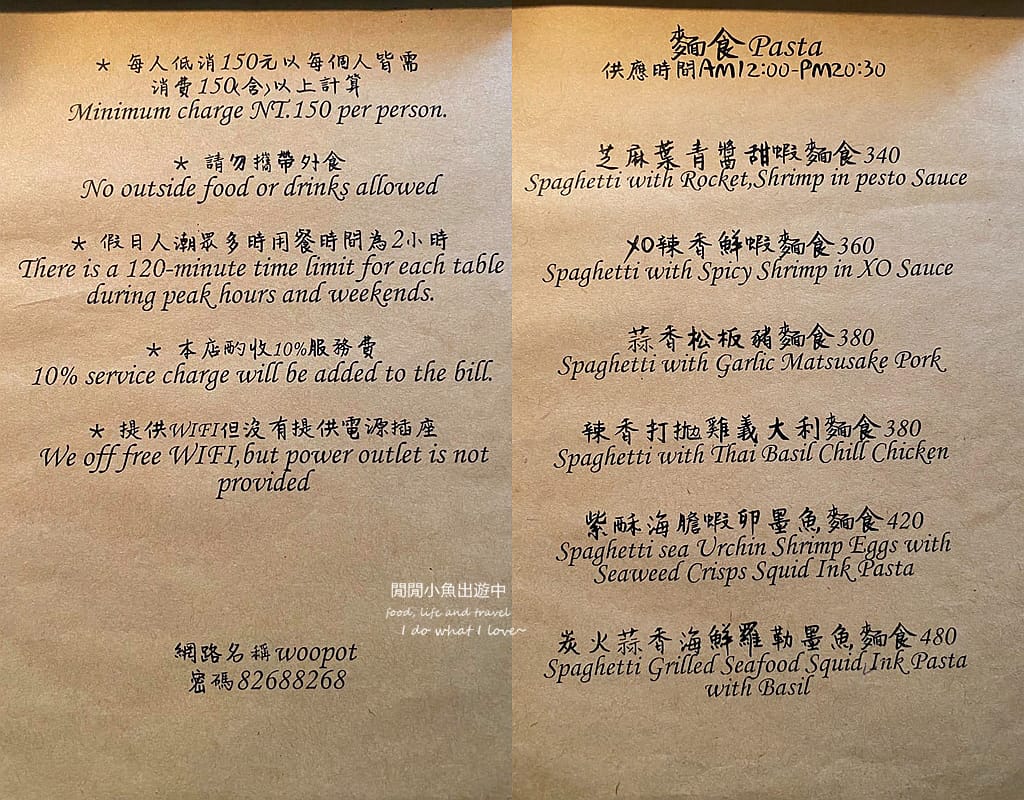 * 每人低消150元以每個人皆需
消費150(含)以上計算
Minimum charge NT.150 per person.
* 請勿攜帶外食
No outside food or drinks allowed
* 假日人潮眾多時用餐時間為2小時
There is a 120-minute time limit for each table
during peak hours and weekends.
* 本店酌收10%服務費
10% service charge will be added to the bill.
* 提供WIFI但沒有提供電源插座
We off free WIFI,but power outlet is not
provided
閒閒小魚出遊中
food, life and travel
I do what I love~
網路名稱woopot
密碼82688268
麵食 Pasta
供應時間AM12:00-PM20:30
芝麻葉青醬甜蝦麵食340
Spaghetti with Rocket,Shrimp in pesto Sauce
XO辣香鮮蝦麵食360
Spaghetti with Spicy Shrimp in XO Sauce
蒜香松板豬麵食380
Spaghetti with Garlic Matsusake Pork
辣香打拋雞義大利麵食380
Spaghetti with Thai Basil Chill Chicken
紫酥海膽蝦卵墨魚麵食420
Spaghetti sea Urchin Shrimp Eggs with
Seaweed Crisps Squid Ink Pasta
炭火蒜香海鮮羅勒墨魚麵食480
Spaghetti Grilled Seafood Squid Ink Pasta
with Basil